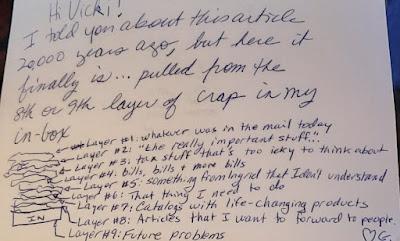 Hi Vicki!
I told you about this article
20,000 years ago, but here it
finally is... pulled from the
8th or 9th layer of crap in my
in-box
Layer #1: whatever was in the mail today
Layer #2: "the really important stuff"...
Layer #3: tax stuff that's too icky to think about
Layer #4: bills, bills & more bills
Layer #5: something from Ingrid that I don't understand
Layer #6: That thing I need to do
Layer #7: Catalogs with life-changing products
Layer #8: Articles that I want to forward to people.
IN
Layer #9: Future problems